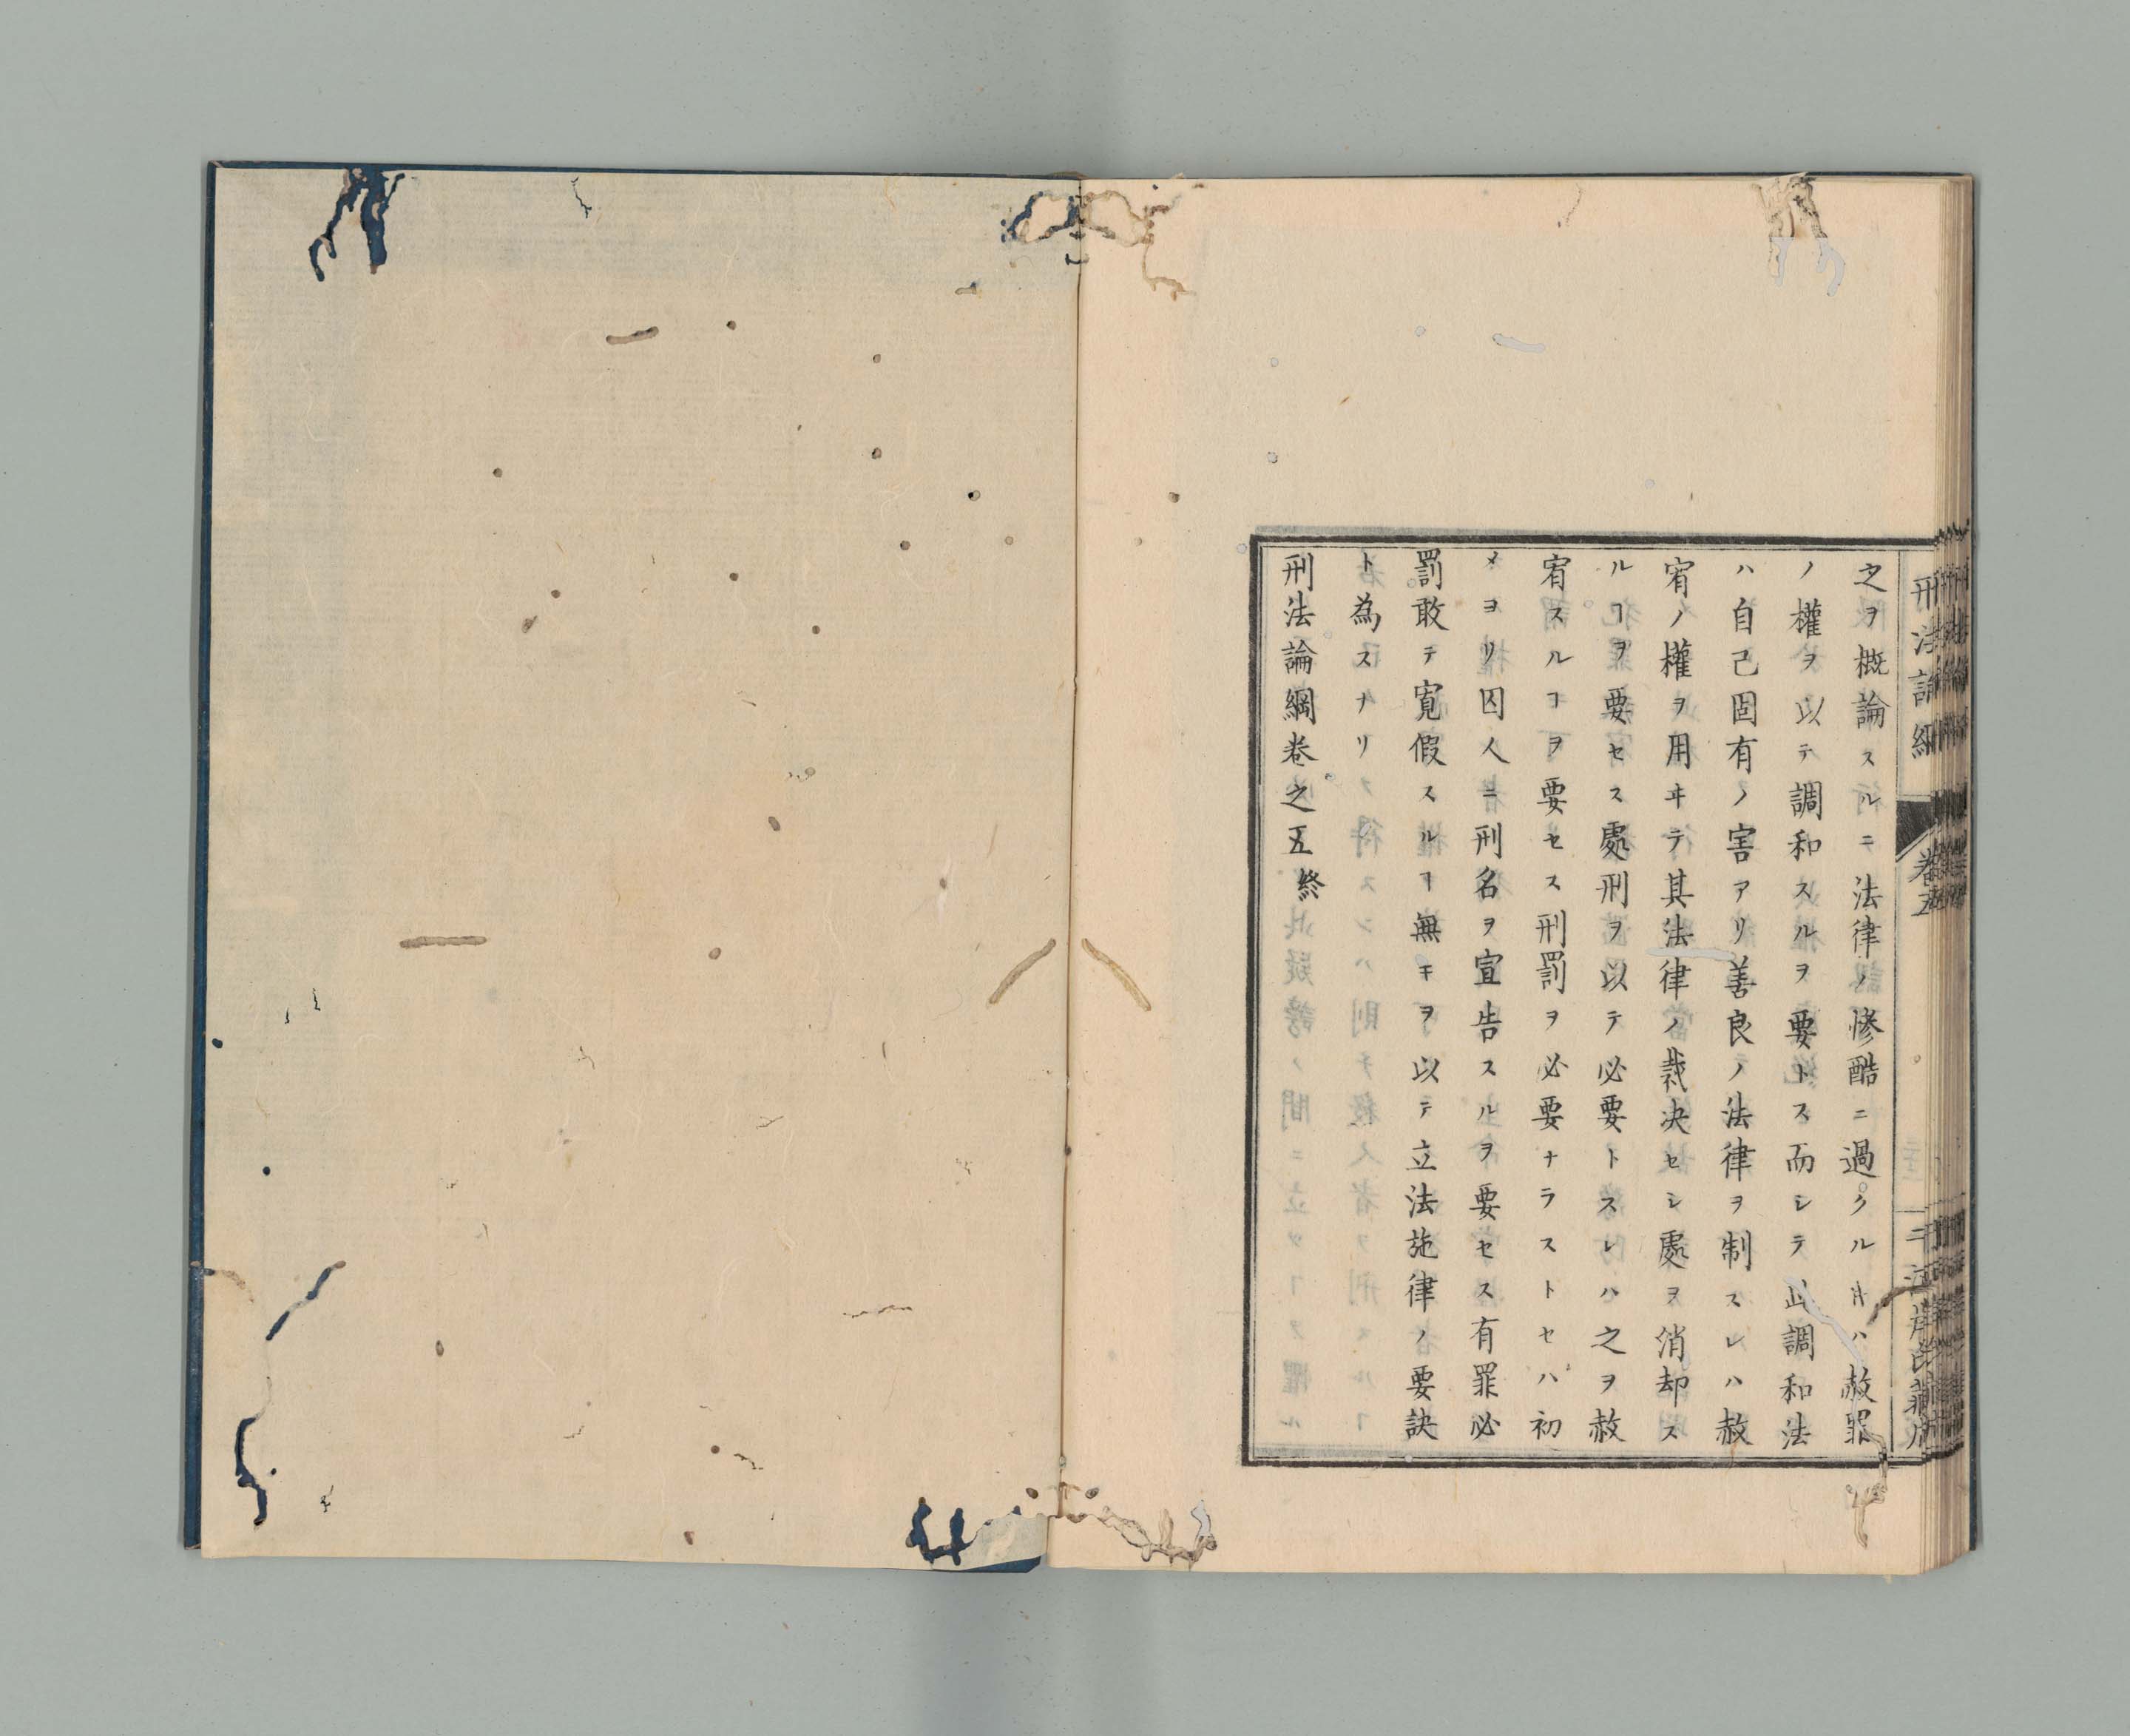 之ヲ概論スルニ法律ノ惨酷ニ過クル𪜈ハ赦罪
ノ權ヲ以テ調和スルヲ要トス而シテ此調和法
ハ自己固有ノ害アリ善良ノ法律ヲ制スレハ赦
宥ノ權ヲ用ヰテ其法律ノ裁决セシ處ヲ消却ス
ルヿヲ要セス處刑ヲ以テ必要トスレハ之ヲ赦
宥スルヿヲ要セス刑罰ヲ必要ナラストセハ初
メヨリ囚人ニ刑名ヲ宣告スルヲ要セス有罪必
罰敢テ寛假スルヿ無キヲ以テ立法施律ノ要訣
ト為スナリ
刑法論綱卷之五終
刑法論綱
卷五